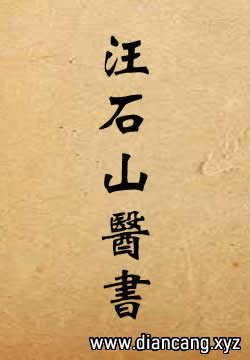 汪石山醫書
www.diancang.xyz